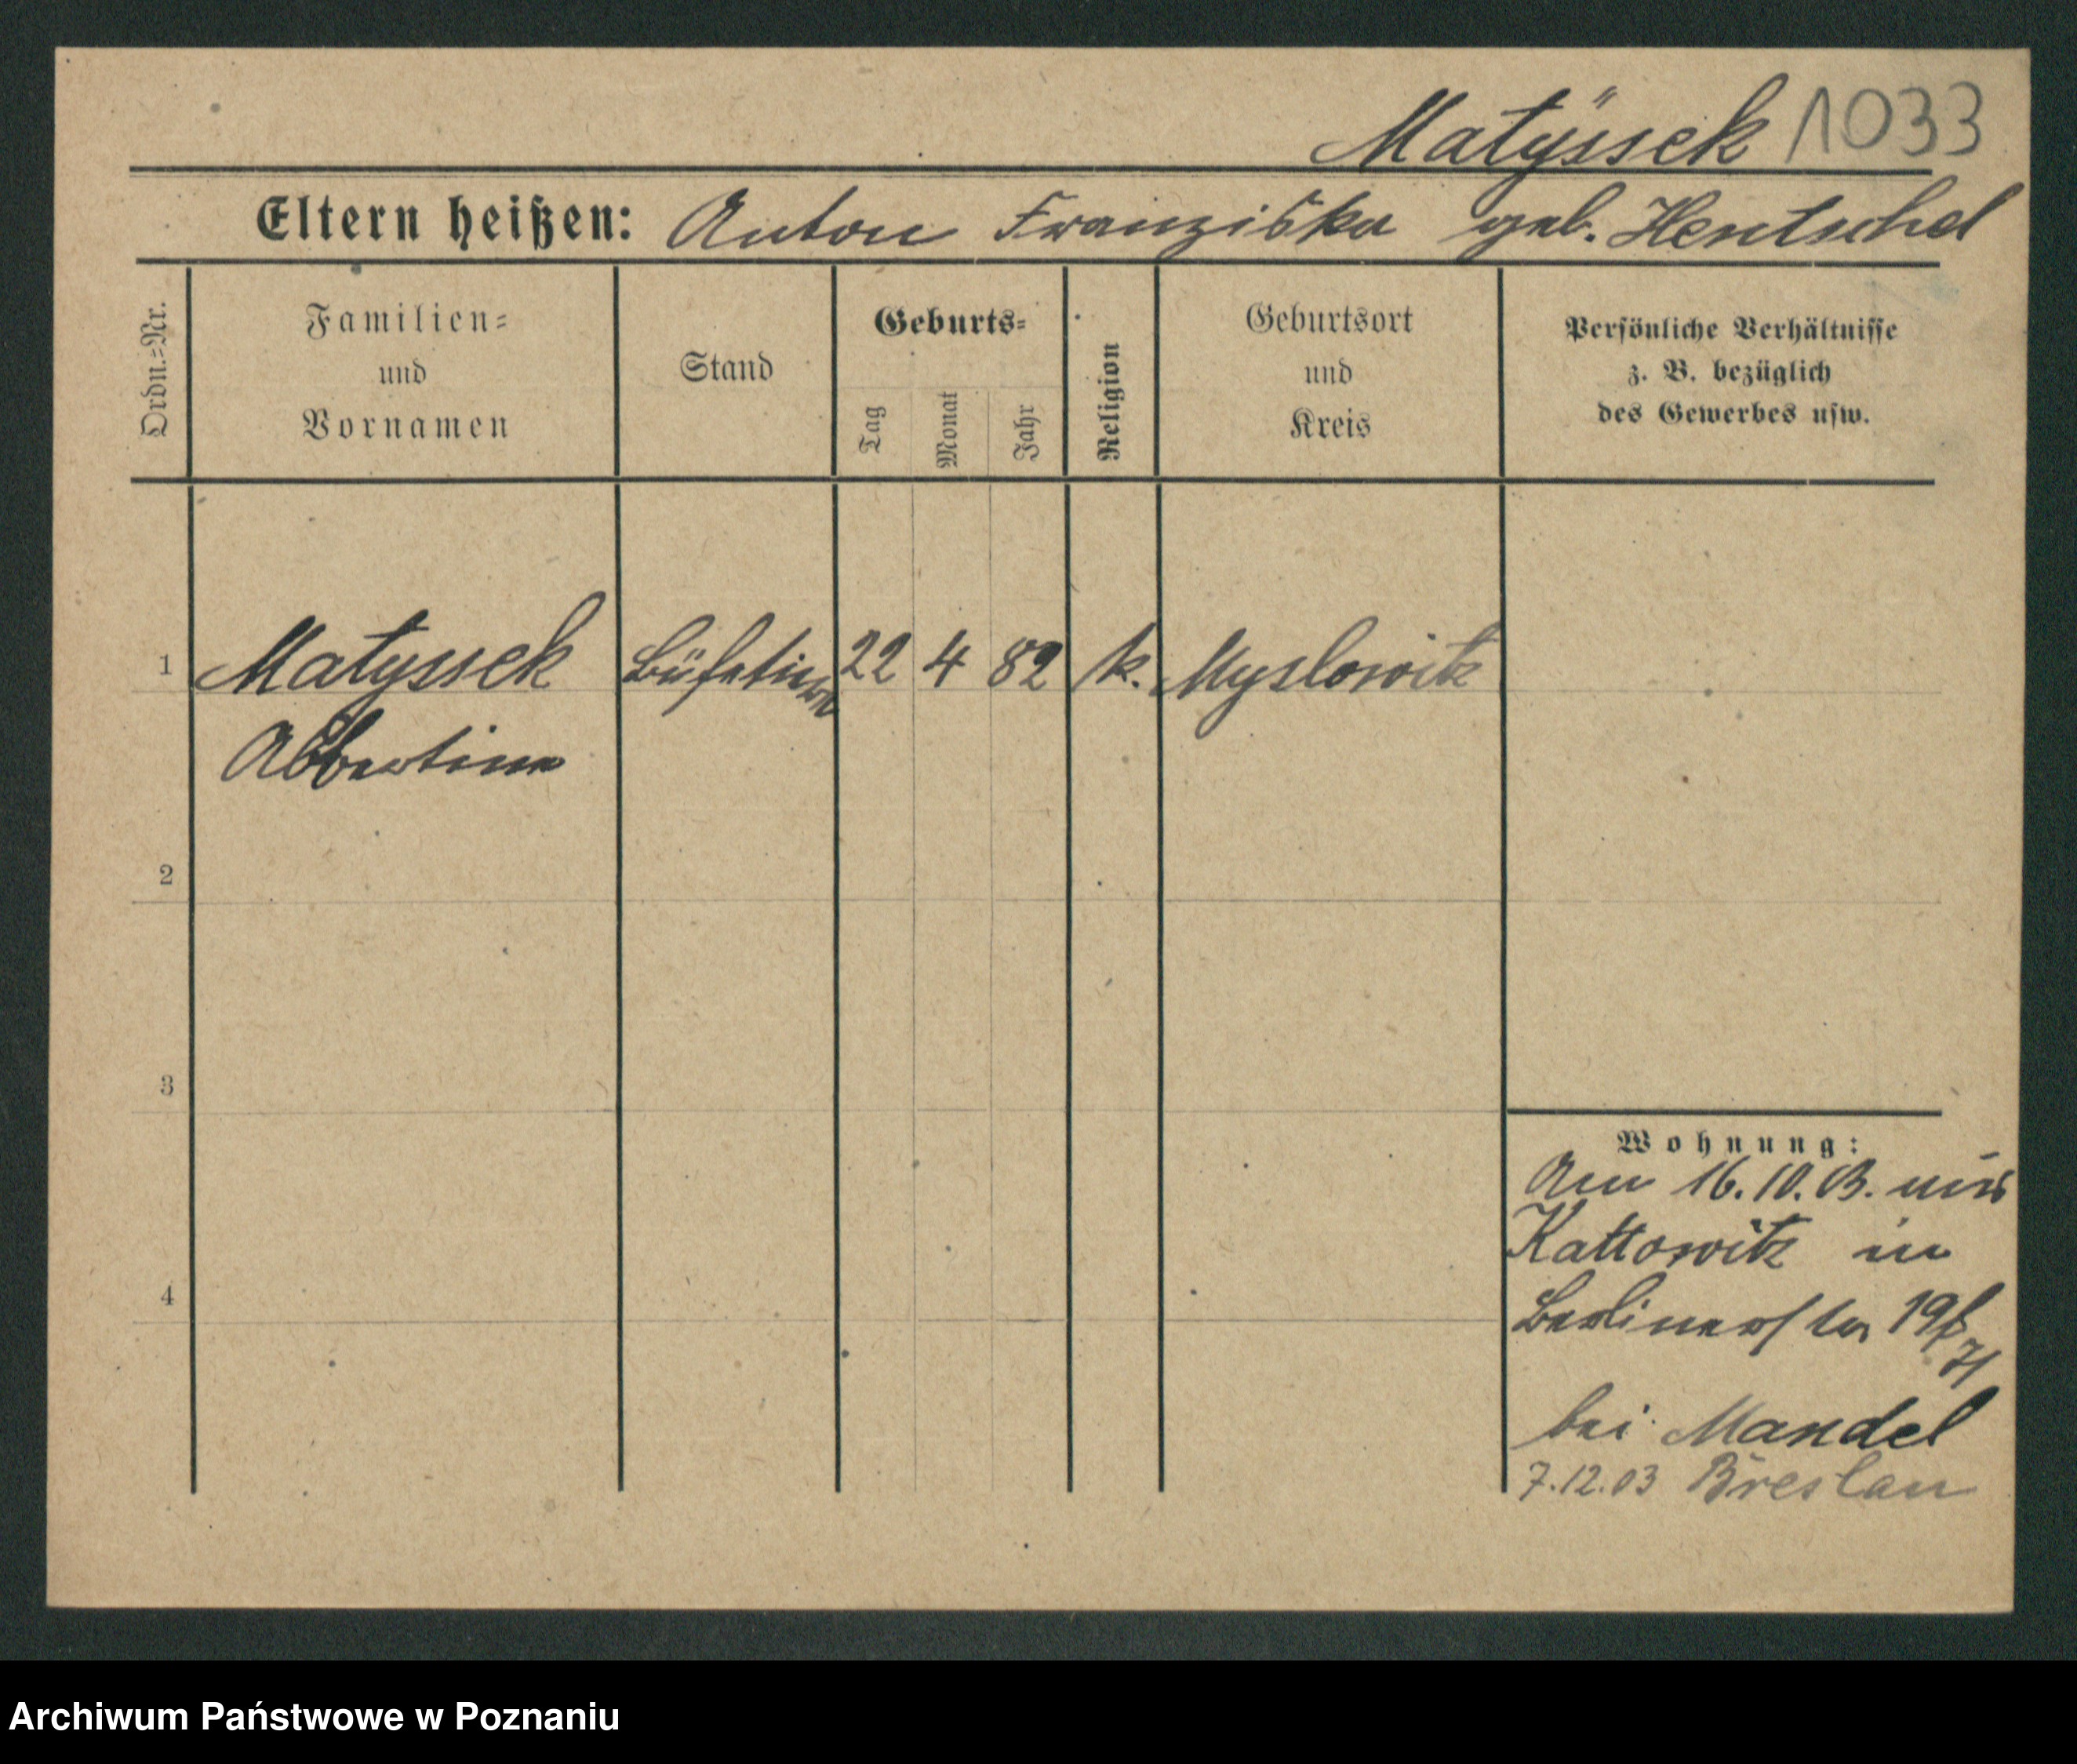 Matyssek 1033
Eltern heißen: Anton Franziska geb. Hentschel
Ordn.=Nr.
Familien=
und
Vornamen
Stand
Geburts=
Tag
Monat
Jahr
Religion
Geburtsort
und
Kreis
Persönliche Verhältnisse
z. B. bezüglich
des Gewerbes usw.
1 Matyssek Büfetiere 22 4 82 k. Myslowitz
Albertine
2
3
4
Wohnung:
Am 16.10.03. aus
Kattowitz in
Berlinerstr 19
bei Mandel
7.12.03 Breslau
Archiwum Państwowe w Poznaniu